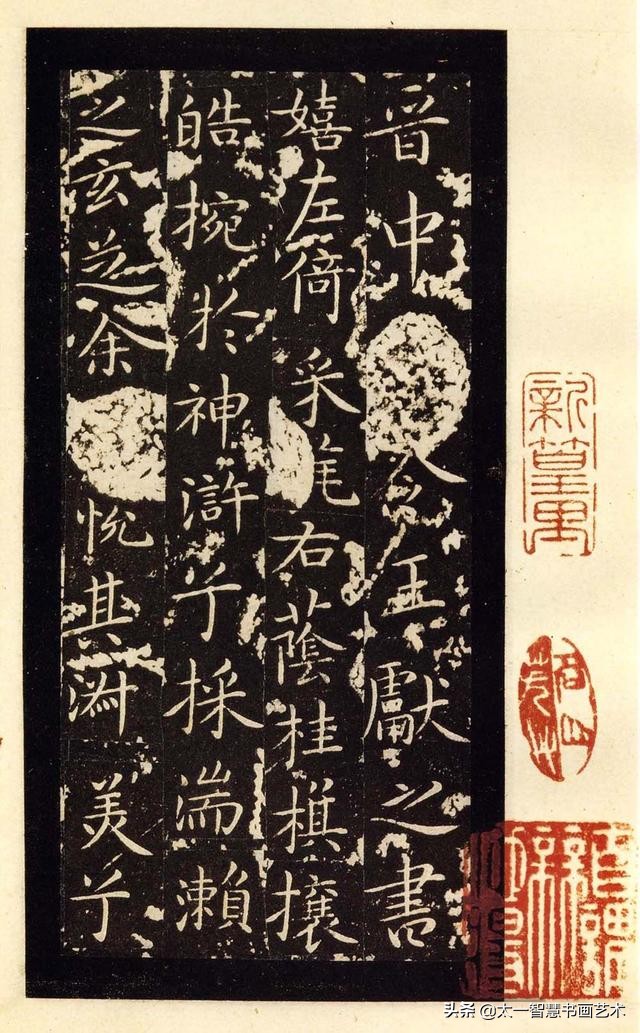 晉中令王獻之書
嬉左倚采旄右蔭桂旗攘
皓捥於神滸兮採湍瀨
之玄芝余悅其淑美兮
头条 @太一智慧书画艺术